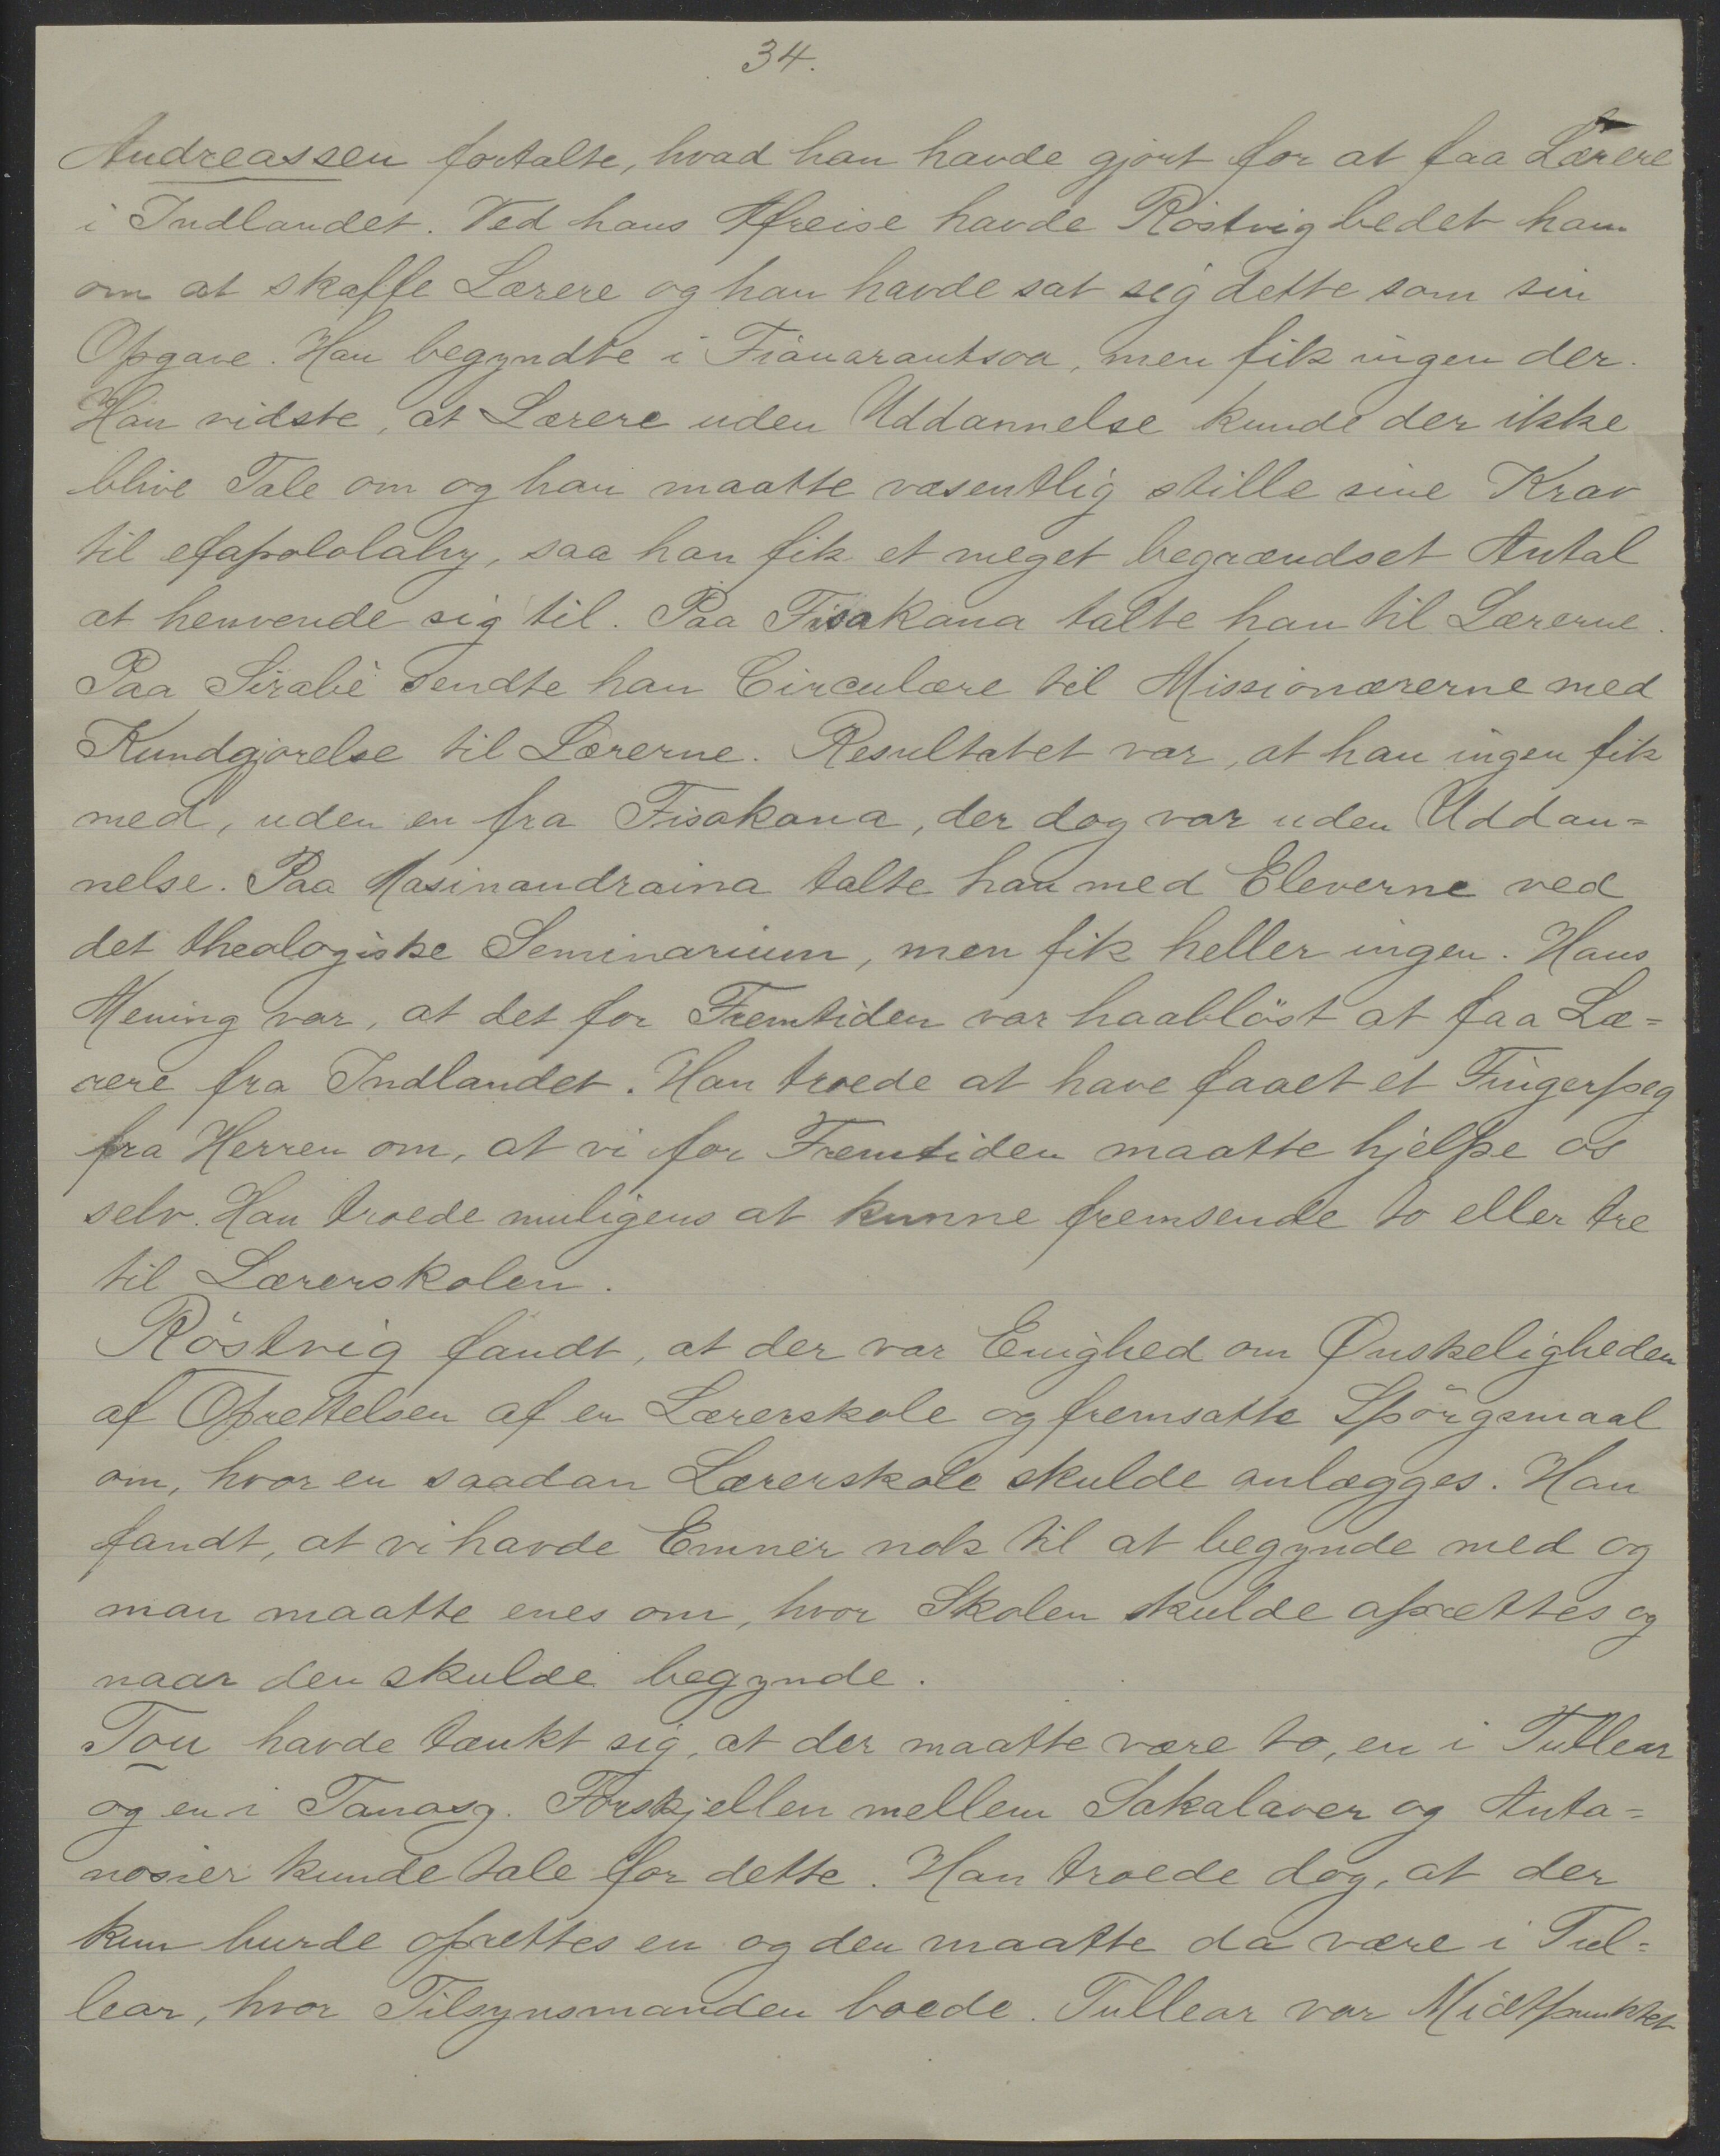 34.
Andreassen fortalte, hvad han havde gjort for at faa Lærere
i Indlandet. Ved hans Afreise havde Röstvig bedet ham
om at skaffe Lærere og han havde sat sig dette som sin
Opgave. Han begyndte i Fianarantsoa, men fik ingen der.
Han vidste, at Lærere uden Uddannelse kunde der ikke
blive Tale om og han maatte væsentlig stille sine Krav
til efapololahy, saa han fik et meget begrændset Antal
at henvende sig til. Paa Fisakana talte han til Lærerne.
Paa Sirabè sendte han Circulære til Missionærerne med
Kundgjorelse til Lærerne. Resultatet var, at han ingen fik
med, uden en fra Fisakana, der dog var uden Uddan=
nelse. Paa Masinandraina talte han med Eleverne ved
det theologiske Seminarium, men fik heller ingen. Hans
Mening var, at det for Fremtiden var haablöst at faa Læ=
rere fra Indlandet. Han troede at have faaet et Fingerpeg
fra Herren om, at vi for Fremtiden maatte hjelpe os
selv. Han troede muligens at kunne fremsende to eller tre
til Lærerskolen.
Röstvig fandt, at der var Enighed om Ønskeligheden
af Oprettelsen af en Lærerskole og fremsatte Spörgsmaal
om, hvor en saadan Lærerskole skulde anlægges. Han
fandt, at vi havde Emner nok til at begynde med og
man maatte enes om, hvor Skolen skulde oprettes og
naar den skulde begynde.
Tou havde tænkt sig, at der maatte være to, en i Tullear
og en i Tanosy. Forskjellen mellem Sakalaver og Anta=
nosier kunde tale for dette. Han troede dog, at der
kun burde oprettes en og den maatte da være i Tul=
lear, hvor Tilsynsmanden boede. Tullear var Midtpunktet